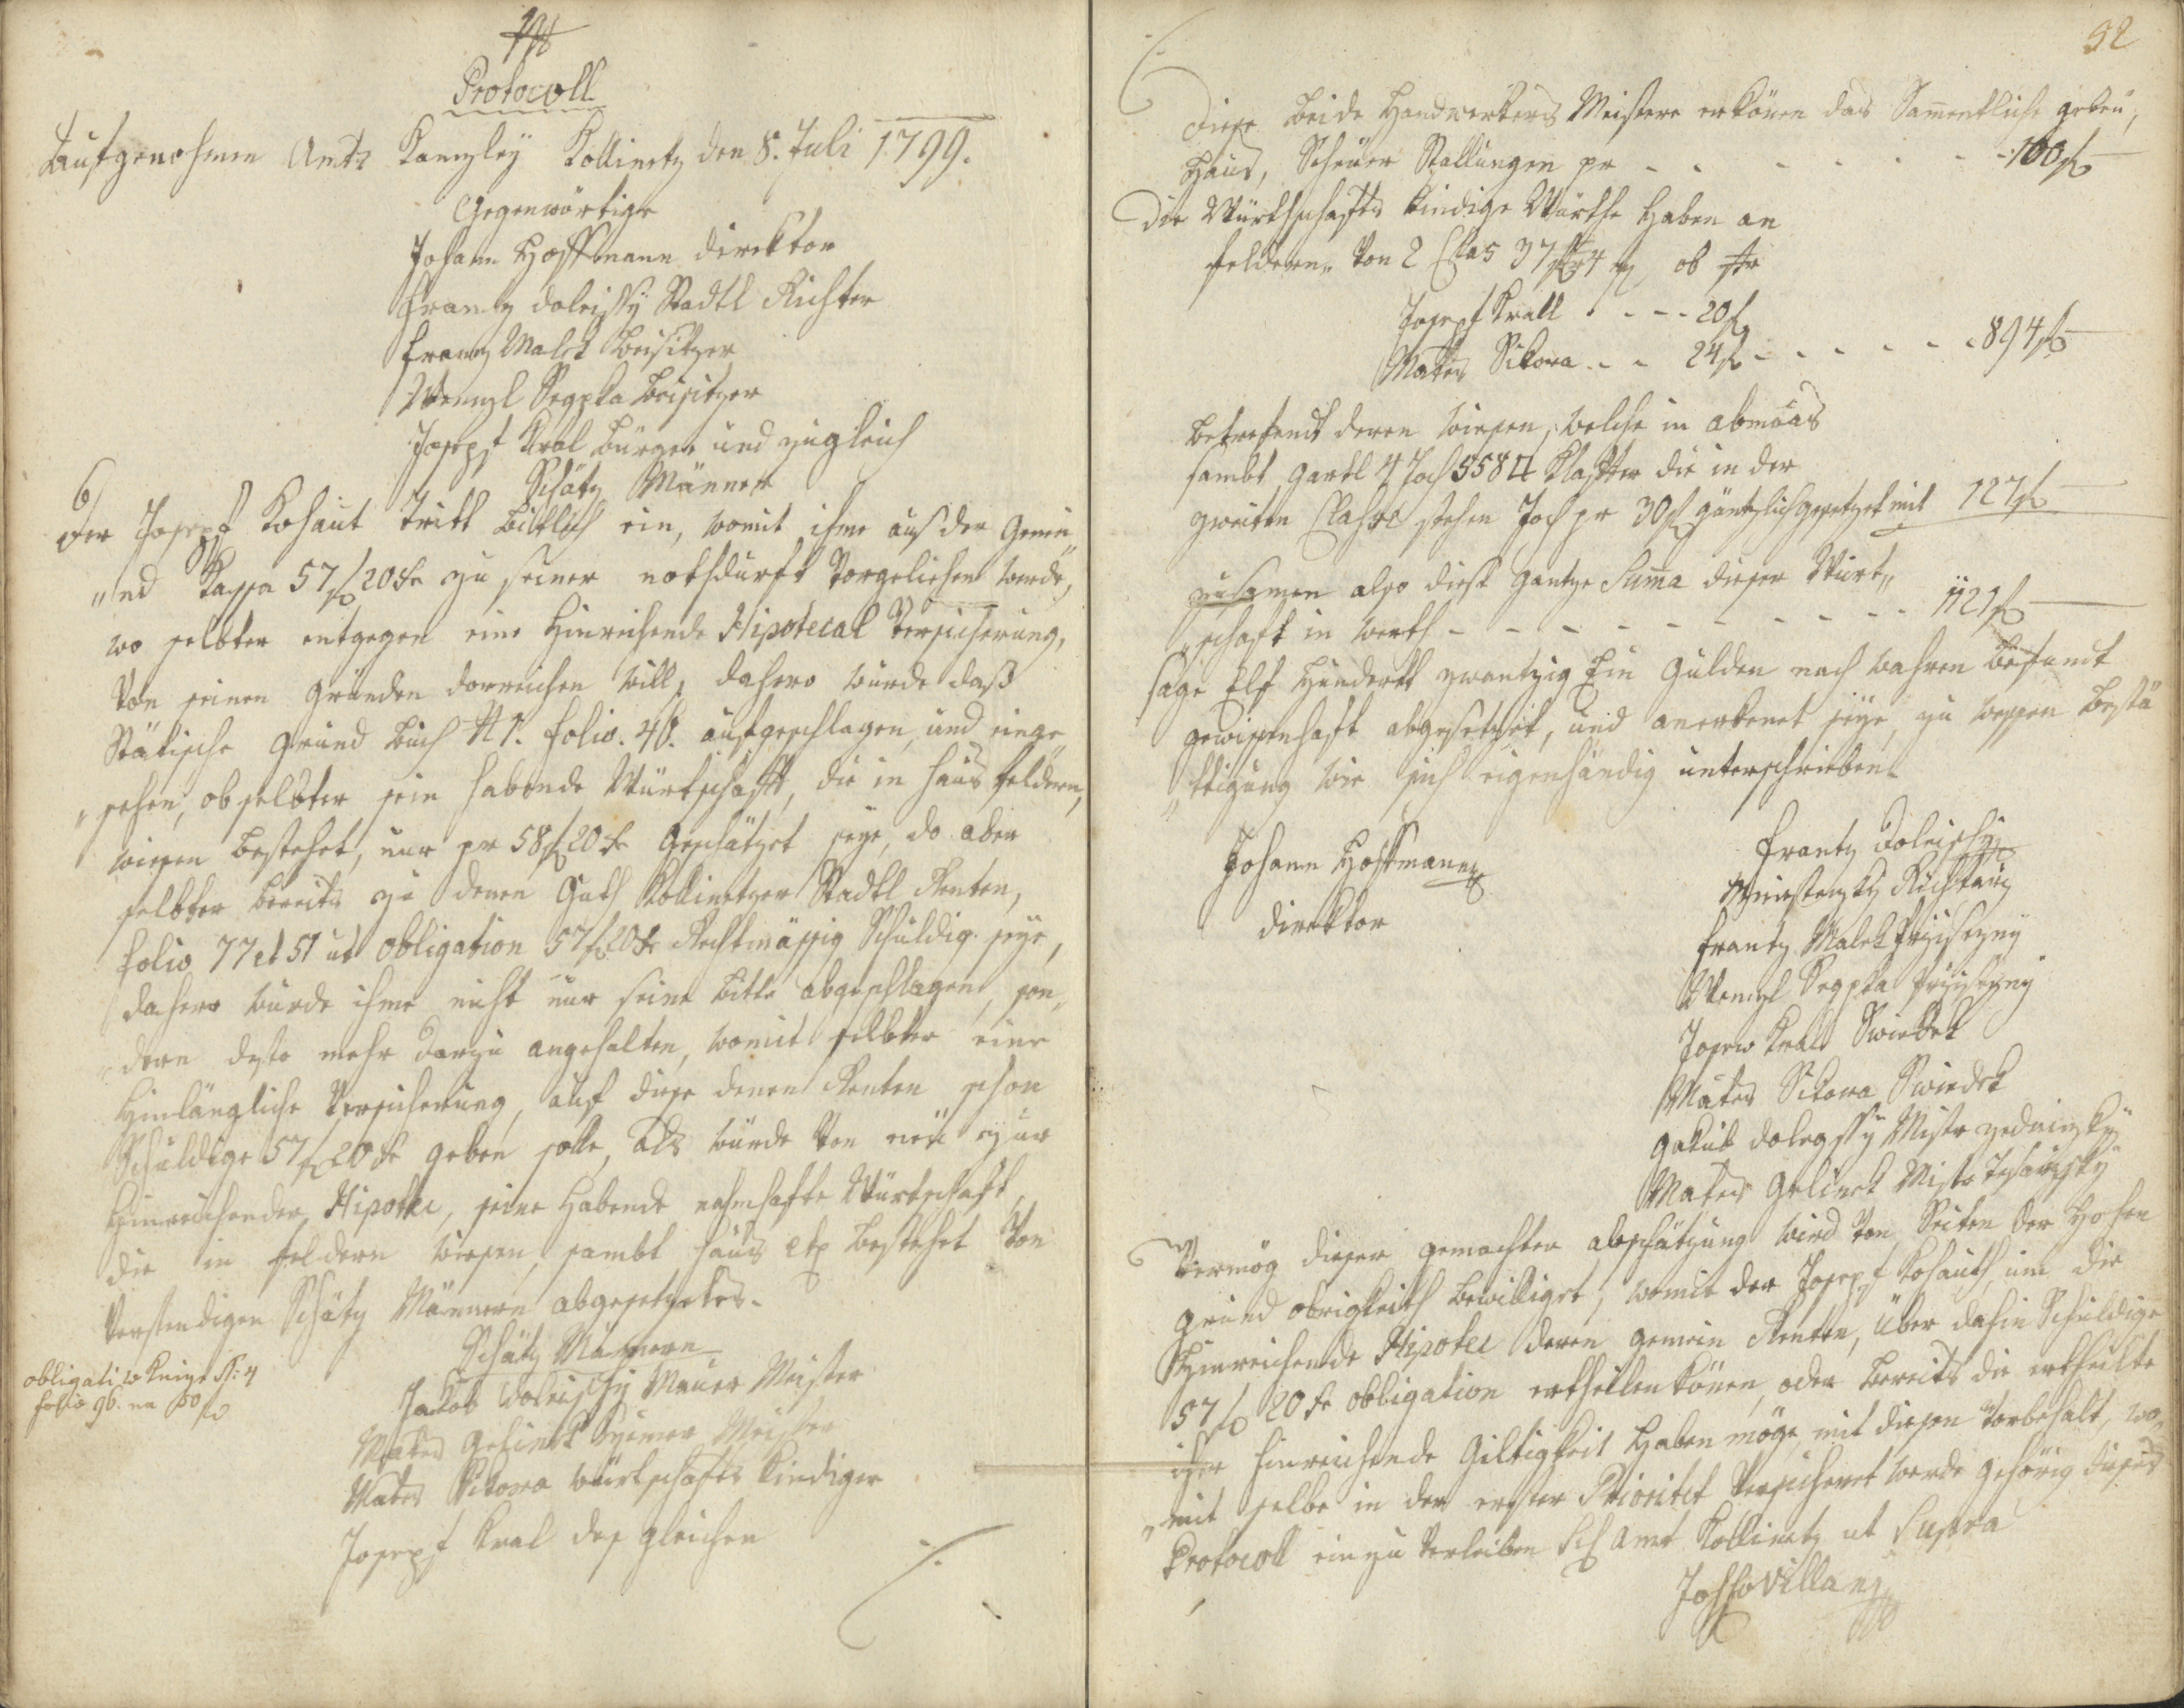 Protocoll
Aufgenohmen Amts Kanzley Kollinetz den 8. Juli 1799.
Gegenwärtige
Johann Hoffmann Direktor
Frantz Doleischy Stadtl Richter
Frantz Malek Beisitzer
Wenzl Segpka Beisitzer
Josepf Kral Bürger und zugleich
Schätz Männer
6
Der Josepf Kohaut tritt bittlich ein, womit ihme aus der Gemei„
„nd Kassa 57 f 20 kr zu seiner nothdurft Vorgeliehen werde,
wo selbter entgegen eine Hinreichende Hipotecal Versicherung,
Von seinen gründen darreichen will, dahero wurde daß
Stätische grund buch N 1. Folio. 46. aufgeschlagen, und einge
„sehen, ob selbter sein habende Würtschaft, die in Haus feldern,
wiesen bestehet, nur pr 58 f 20 kr geschätzet seye, da aber
selbter bereits zu denen Guth Kollinetzer Stadtl Renten,
Folio 77 et 51 ut obligation 57 f 20 kr Rechtmässig Schuldig seye,
dahero wurde ihme nicht nur seine bitte abgeschlagen, son„
„dern desto mehr darzu angehalten, womit selbter eine
Hinlängliche Versicherung, auf diese denen Renten schon
Schuldige 57 f 20 kr geben solle, als wurde Von neu zur
Hinreichender Hipotec, seine Habende nahmhafte Würtschaft,
die in feldern wiesen, sambt haus etc bestehet Von
Verstendigen Schätz Männern abgesetzet als.
Schätz Männern
Jakob Doleischy Mauer Meister
Mates Gelinek Zimer Meister
Mates Sikora würtschafts kindiger
Josepf Kral des gleichen
obligati w Knize N: 4
folio 96. na 50 f
./.
52
./.
Diese beide Handwerkers Meistere erkönen das Samentliche gebeu,
Haus, Scheuer Stallungen pr - - - - - - 100 f
Die Würthschafts kindige Würthe Haben an
feldern„ Von 2 Clas 37
Josepf Krall - - - 20 f
Mates Sikora - - 24 f - - - - - 894 f
betrefend deren wiesen, welche in abmaas
sambt gartl 4 Joch 558 □ Klafter die in der
zweiten Classe stehen Joch pr 30 f gäntzlich gesetzet mit 127 f
zusamen also diese gantze Suma dieser Würt„
„schaft in werth - - - - - - - - 1121 f
sage Elf Hundertt zwantzig Ein gulden nach wahren befund
gewissenhaft abgesetzet, und anerkenet seye, zu wessen bestä
„ttigung wir sich eigenhändig unterschrieben.
Johann Hoffmann
Direktor
Frantz Doleischy
Miestensky Richtarz
Frantz Malek Przisezny
Wenzl Segpka Przisezny
Josew Kral Swiedek
Mates Sikora Swiedek
Jakub Dolegssy Mistr zednizky
Mates Gelinek Mistr Tesarzsky
Vermög dieser gemachter abschätzung wird Von Seiten der Hohen
grund obrigkeith bewilliget, womit der Josepf Kohauth, um die
Hinreichende Hipotec deren gemein Renten, über dahin Schuldige
57 f 20 kr obligation ertheillen könen, oder bereits die ertheilte
ihre hinreichende Giltigkeit Haben möge, mit diesen Vorbehalt, wo„
„mit selbe in der erster Prioritet Versicheret werde gehörig dieses
Protocoll einzu Verleiben Sch Amt Kollinetz ut Supra